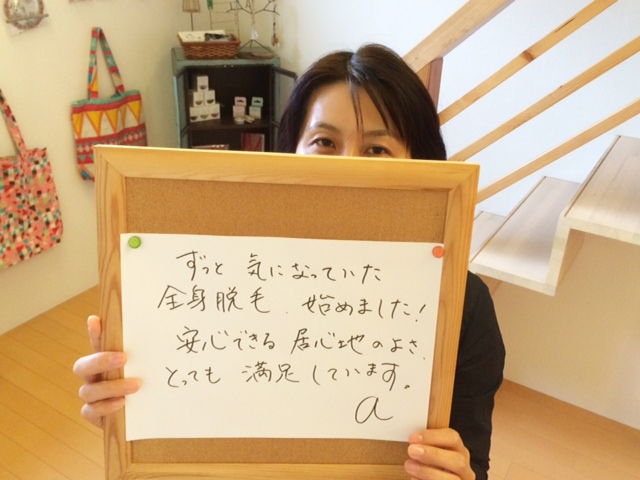 ずっと 気になっていた
全身脱毛 始めました!
安心できる 居心地のよさ、
とっても 満足しています。
a